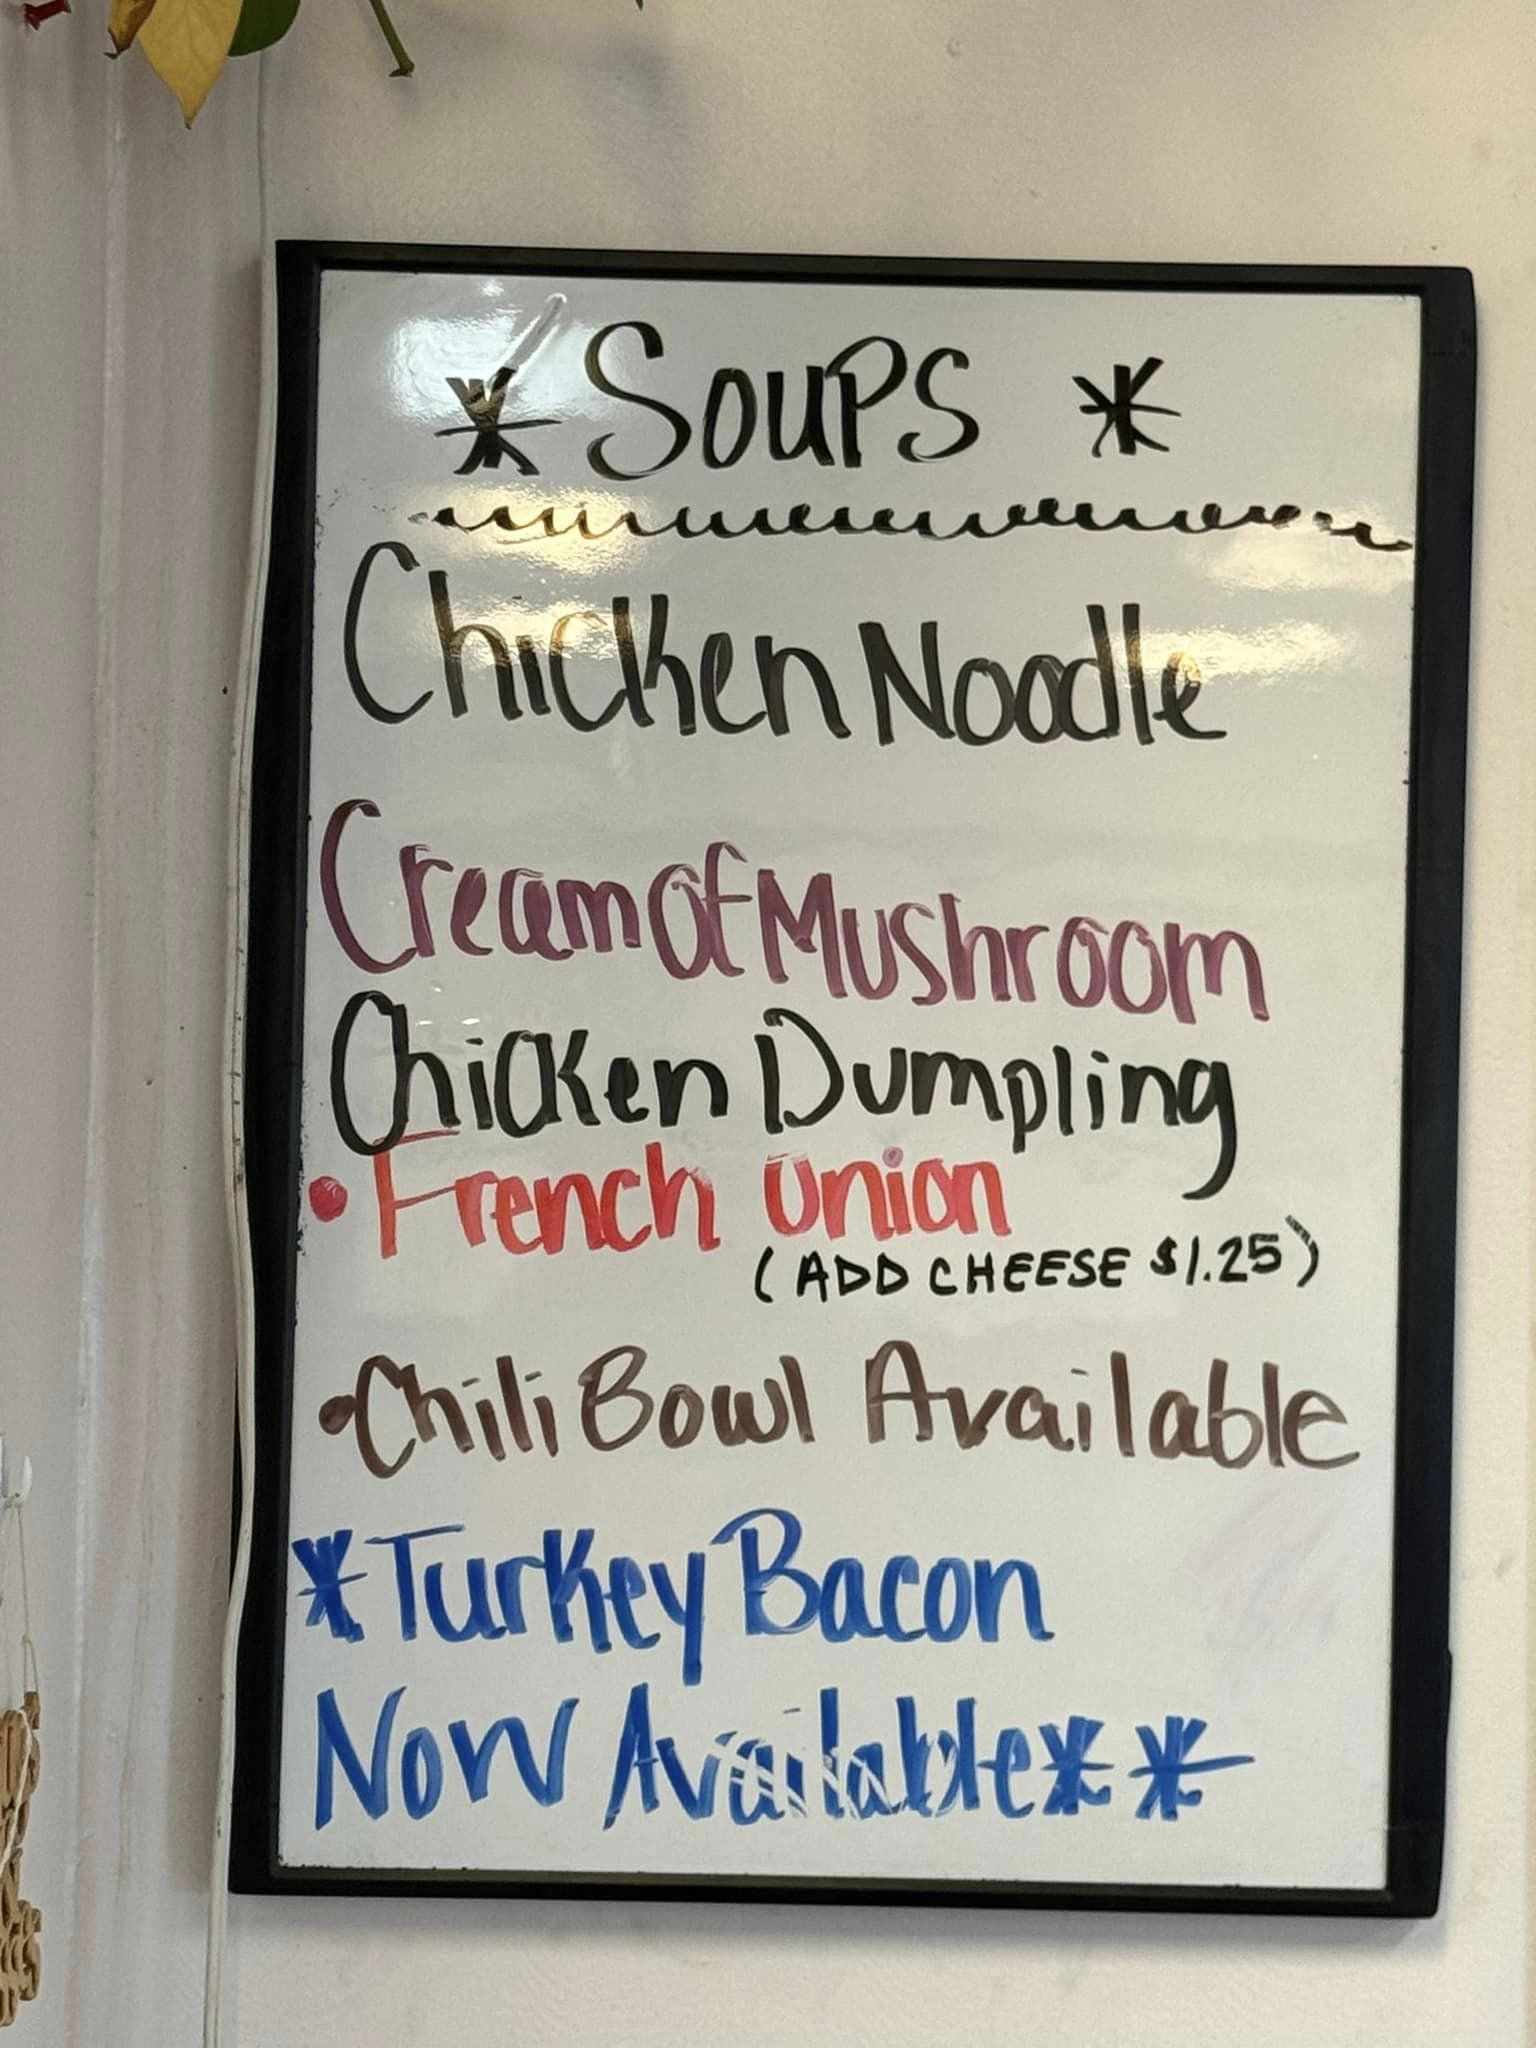 * Soups *
Chicken Noodle
Cream Of Mushroom
Chicken Dumpling
• French Union
(ADD CHEESE $1.25)
• Chili Bowl Available
* Turkey Bacon
Now Available * *